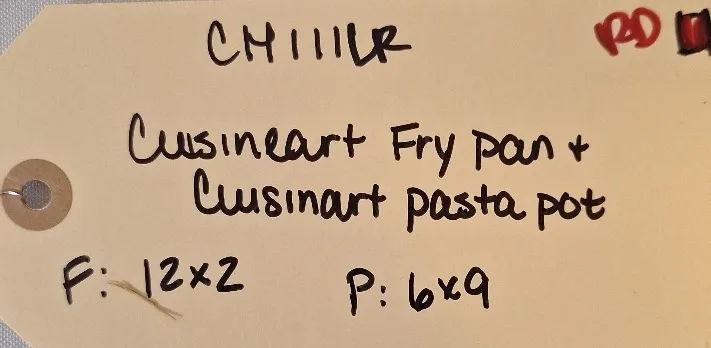 CM111LR
RD
Cusineart Fry pan +
Cuisinart pasta pot
F: 12x2 P: 6x9